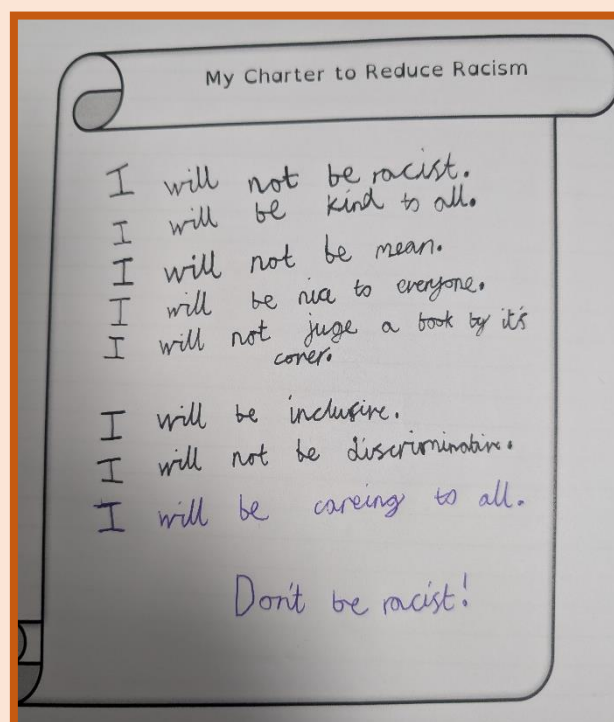 My Charter to Reduce Racism
I will not be racist.
I will be kind to all.
I will not be mean.
I will be nice to everyone.
I will not juge a book by it's
cover.
I will be inclusive.
I will not be discriminative.
I will be careing to all.
Don't be racist!